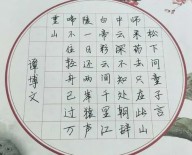 松下问童子言
师采药去只在此山
中云深不知处朝辞
白帝彩云间千里江
陵一日还两岸猿声
啼不住轻舟已过万
重山
谭博文